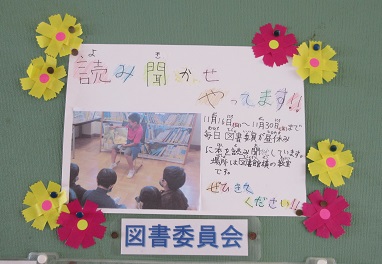 よ き
読み聞かせ
やってます!!
11月16日(月)〜11月30日(月)まで
毎日 図書委員が昼休み
に本を読み聞かせしています。
場所は図書館横の教室
です。
ぜひきて
ください!!
図書委員会